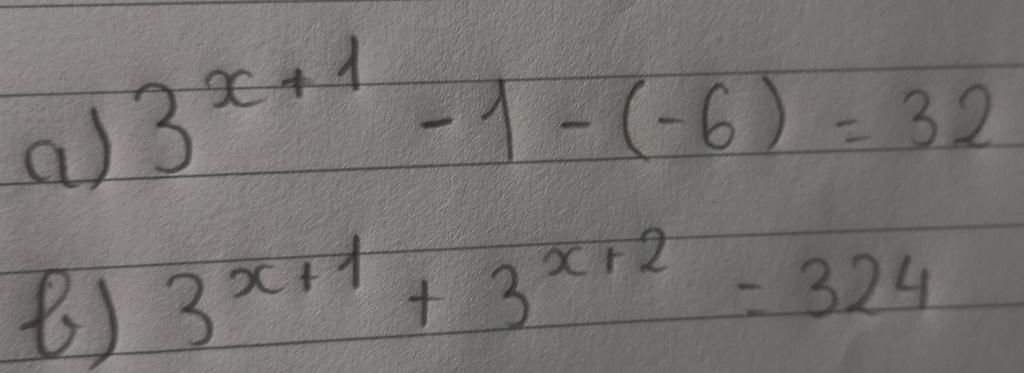 a) 3^{x+1} - 1 - (-6) = 32
b) 3^{x+1} + 3^{x+2} = 324